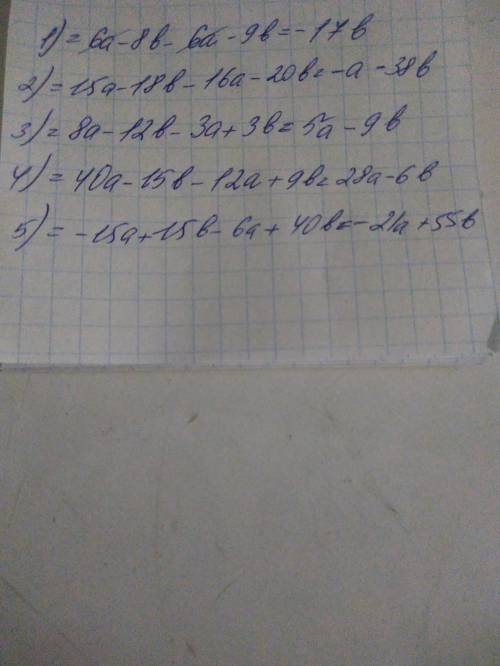 1) = 6а - 8в - 6а - 9в = - 17в
2) = 15а - 18в - 16а - 20в = - а - 38в
3) = 8а - 12в - 3а + 3в = 5а - 9в
4) = 40а - 15в - 12а + 9в = 28а - 6в
5) = - 15а + 15в - 6а + 40в = - 21а + 55в